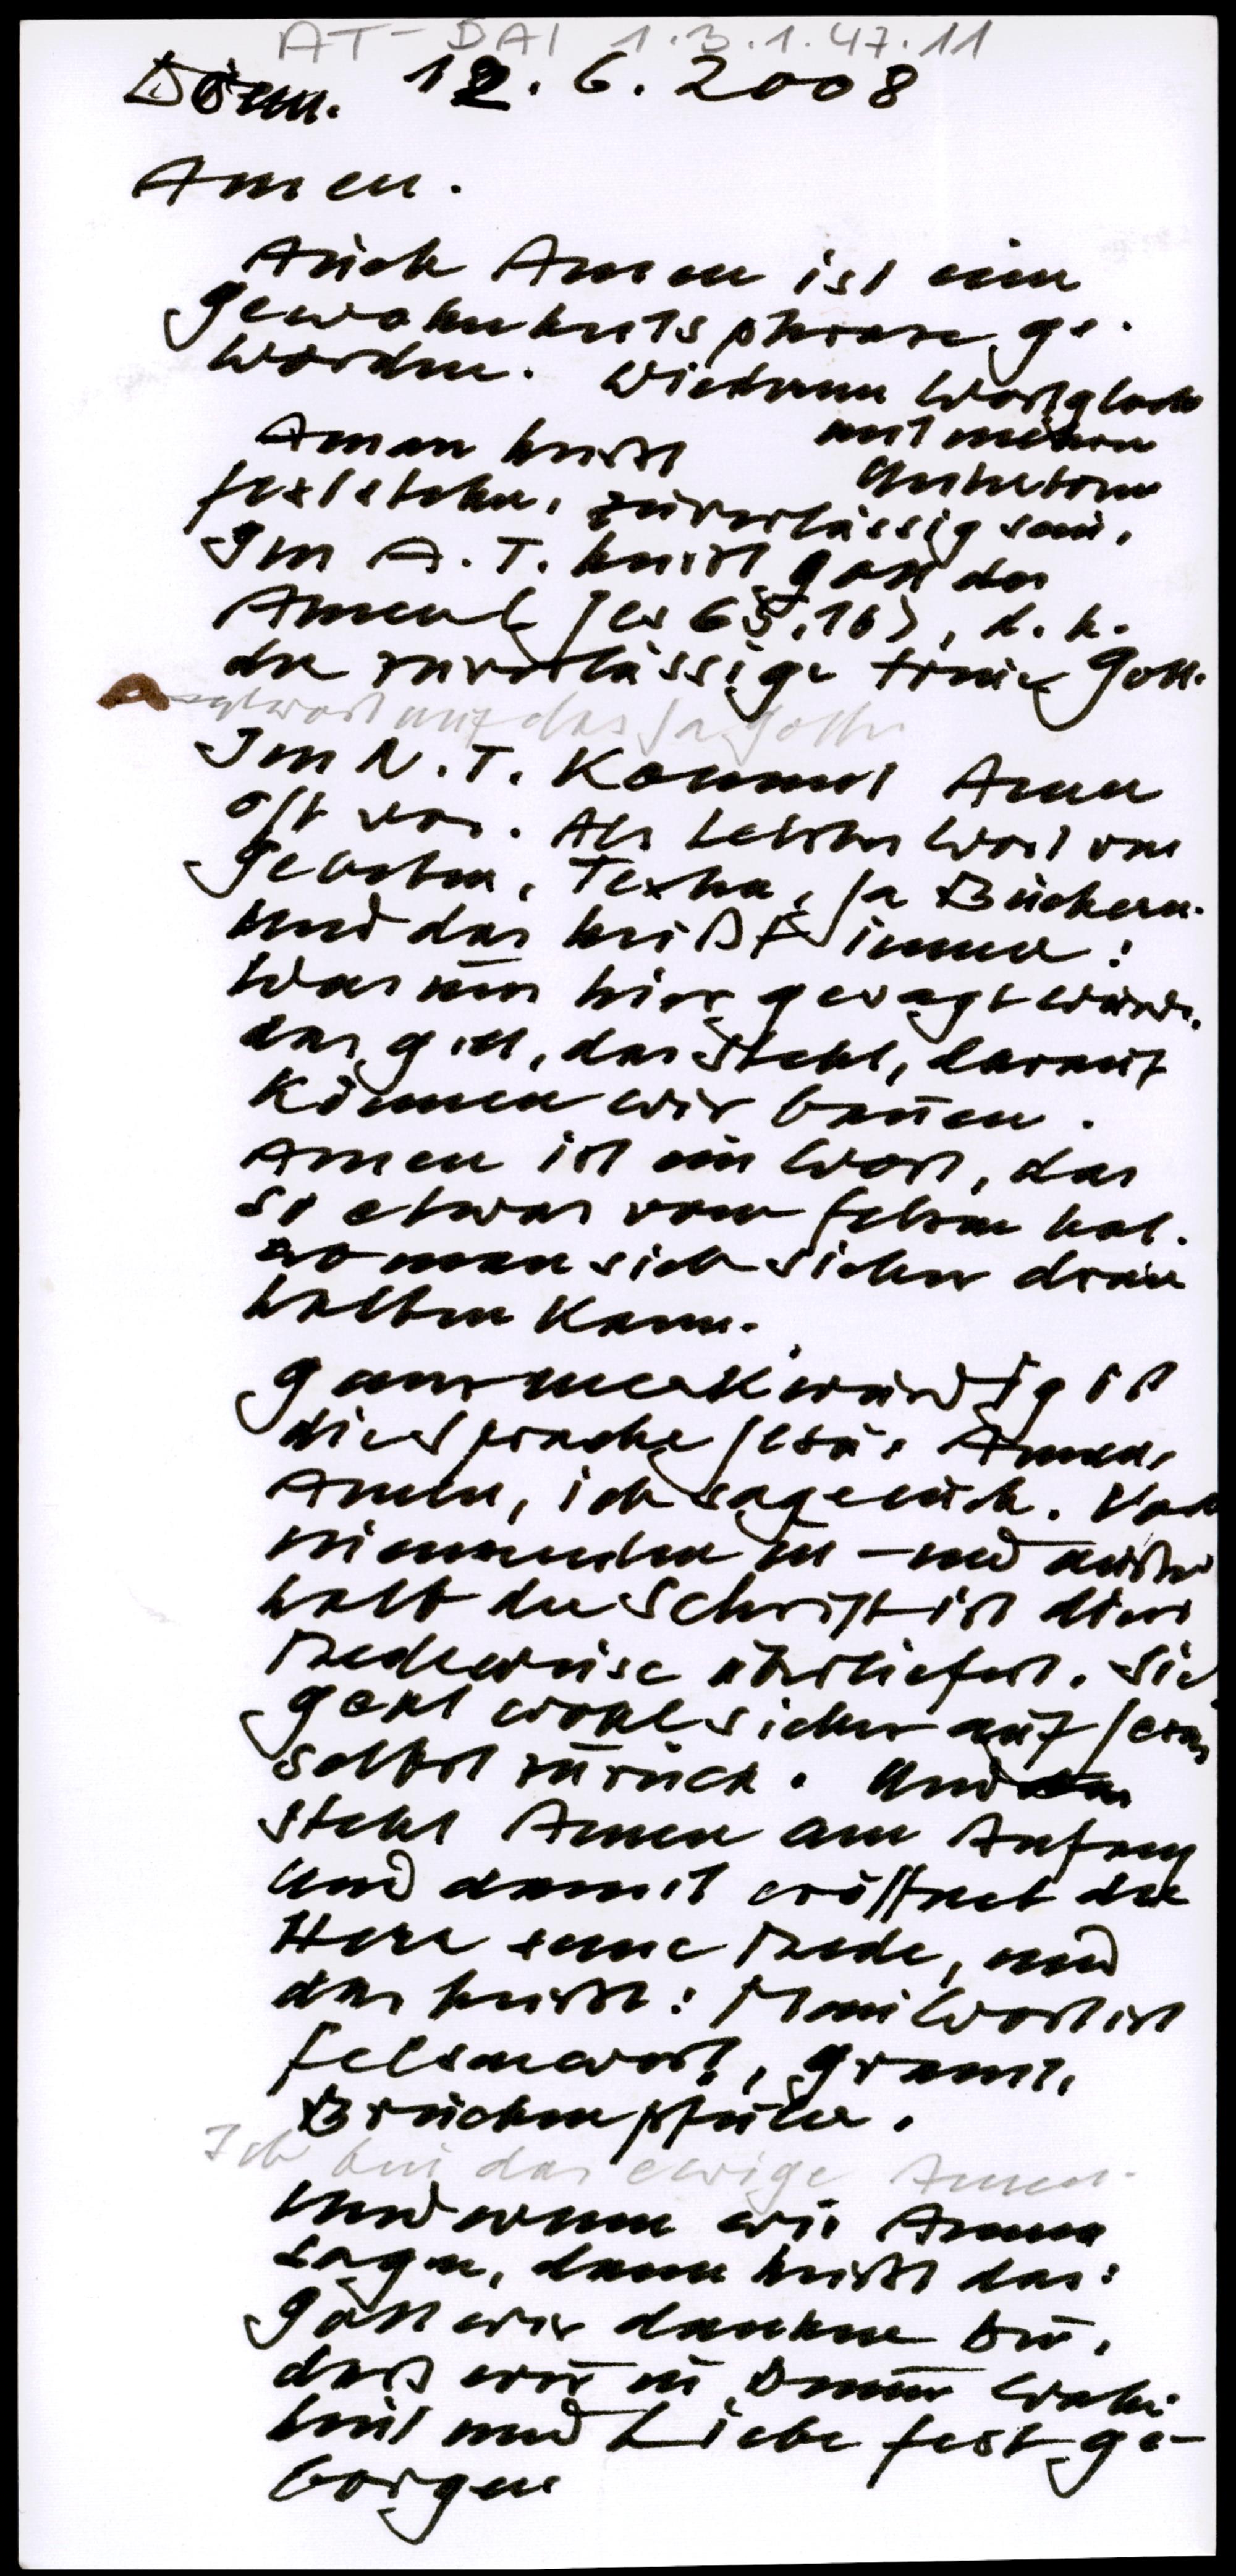 AT-DAI 1.3.1.47.11
Döm. 12.6.2008
Amen.
Auch Amen ist eine
gewohnheitsphrase ge-
worden. Wiederum Wortglocke
mit mehren
Untertönen
Aman heisst
feststehen, zuverlässig sein.
Im A.T. heisst Gott der
Amen (Jes 65,16), d.h.
der zuverlässige treue Gott.
Antwort auf das Ja Gottes
Im N.T. kommt Amen
oft vor. Als letztes Wort von
Gebeten, Texten, ja Büchern.
Und das heißt immer:
Was nun hier gesagt wurde,
das gilt, das steht, darauf
können wir bauen.
Amen ist ein Wort, das
so etwas vom Felsen hat.
wo man sich sicher dran
halten kann.
Ganz merkwürdig ist
die Sprache Jesu: Amen,
Amen, ich sage euch. Von
niemandem in- und außer
halb der Schrift ist diese
Redeweise überliefert. Sie
geht wohl sicher auf Jesus
selbst zurück. Und
steht Amen am Anfang
und damit eröffnet der
Herr seine Rede, und
das heisst: Mein Wort ist
Felsenwort, Granit,
Brückenpfeiler.
Ich bin das ewige Amen.
Und wenn wir Amen
sagen, dann heisst das:
Gott wir danken Dir,
dass wir in Deiner Wahr-
heit und Liebe fest ge-
borgen